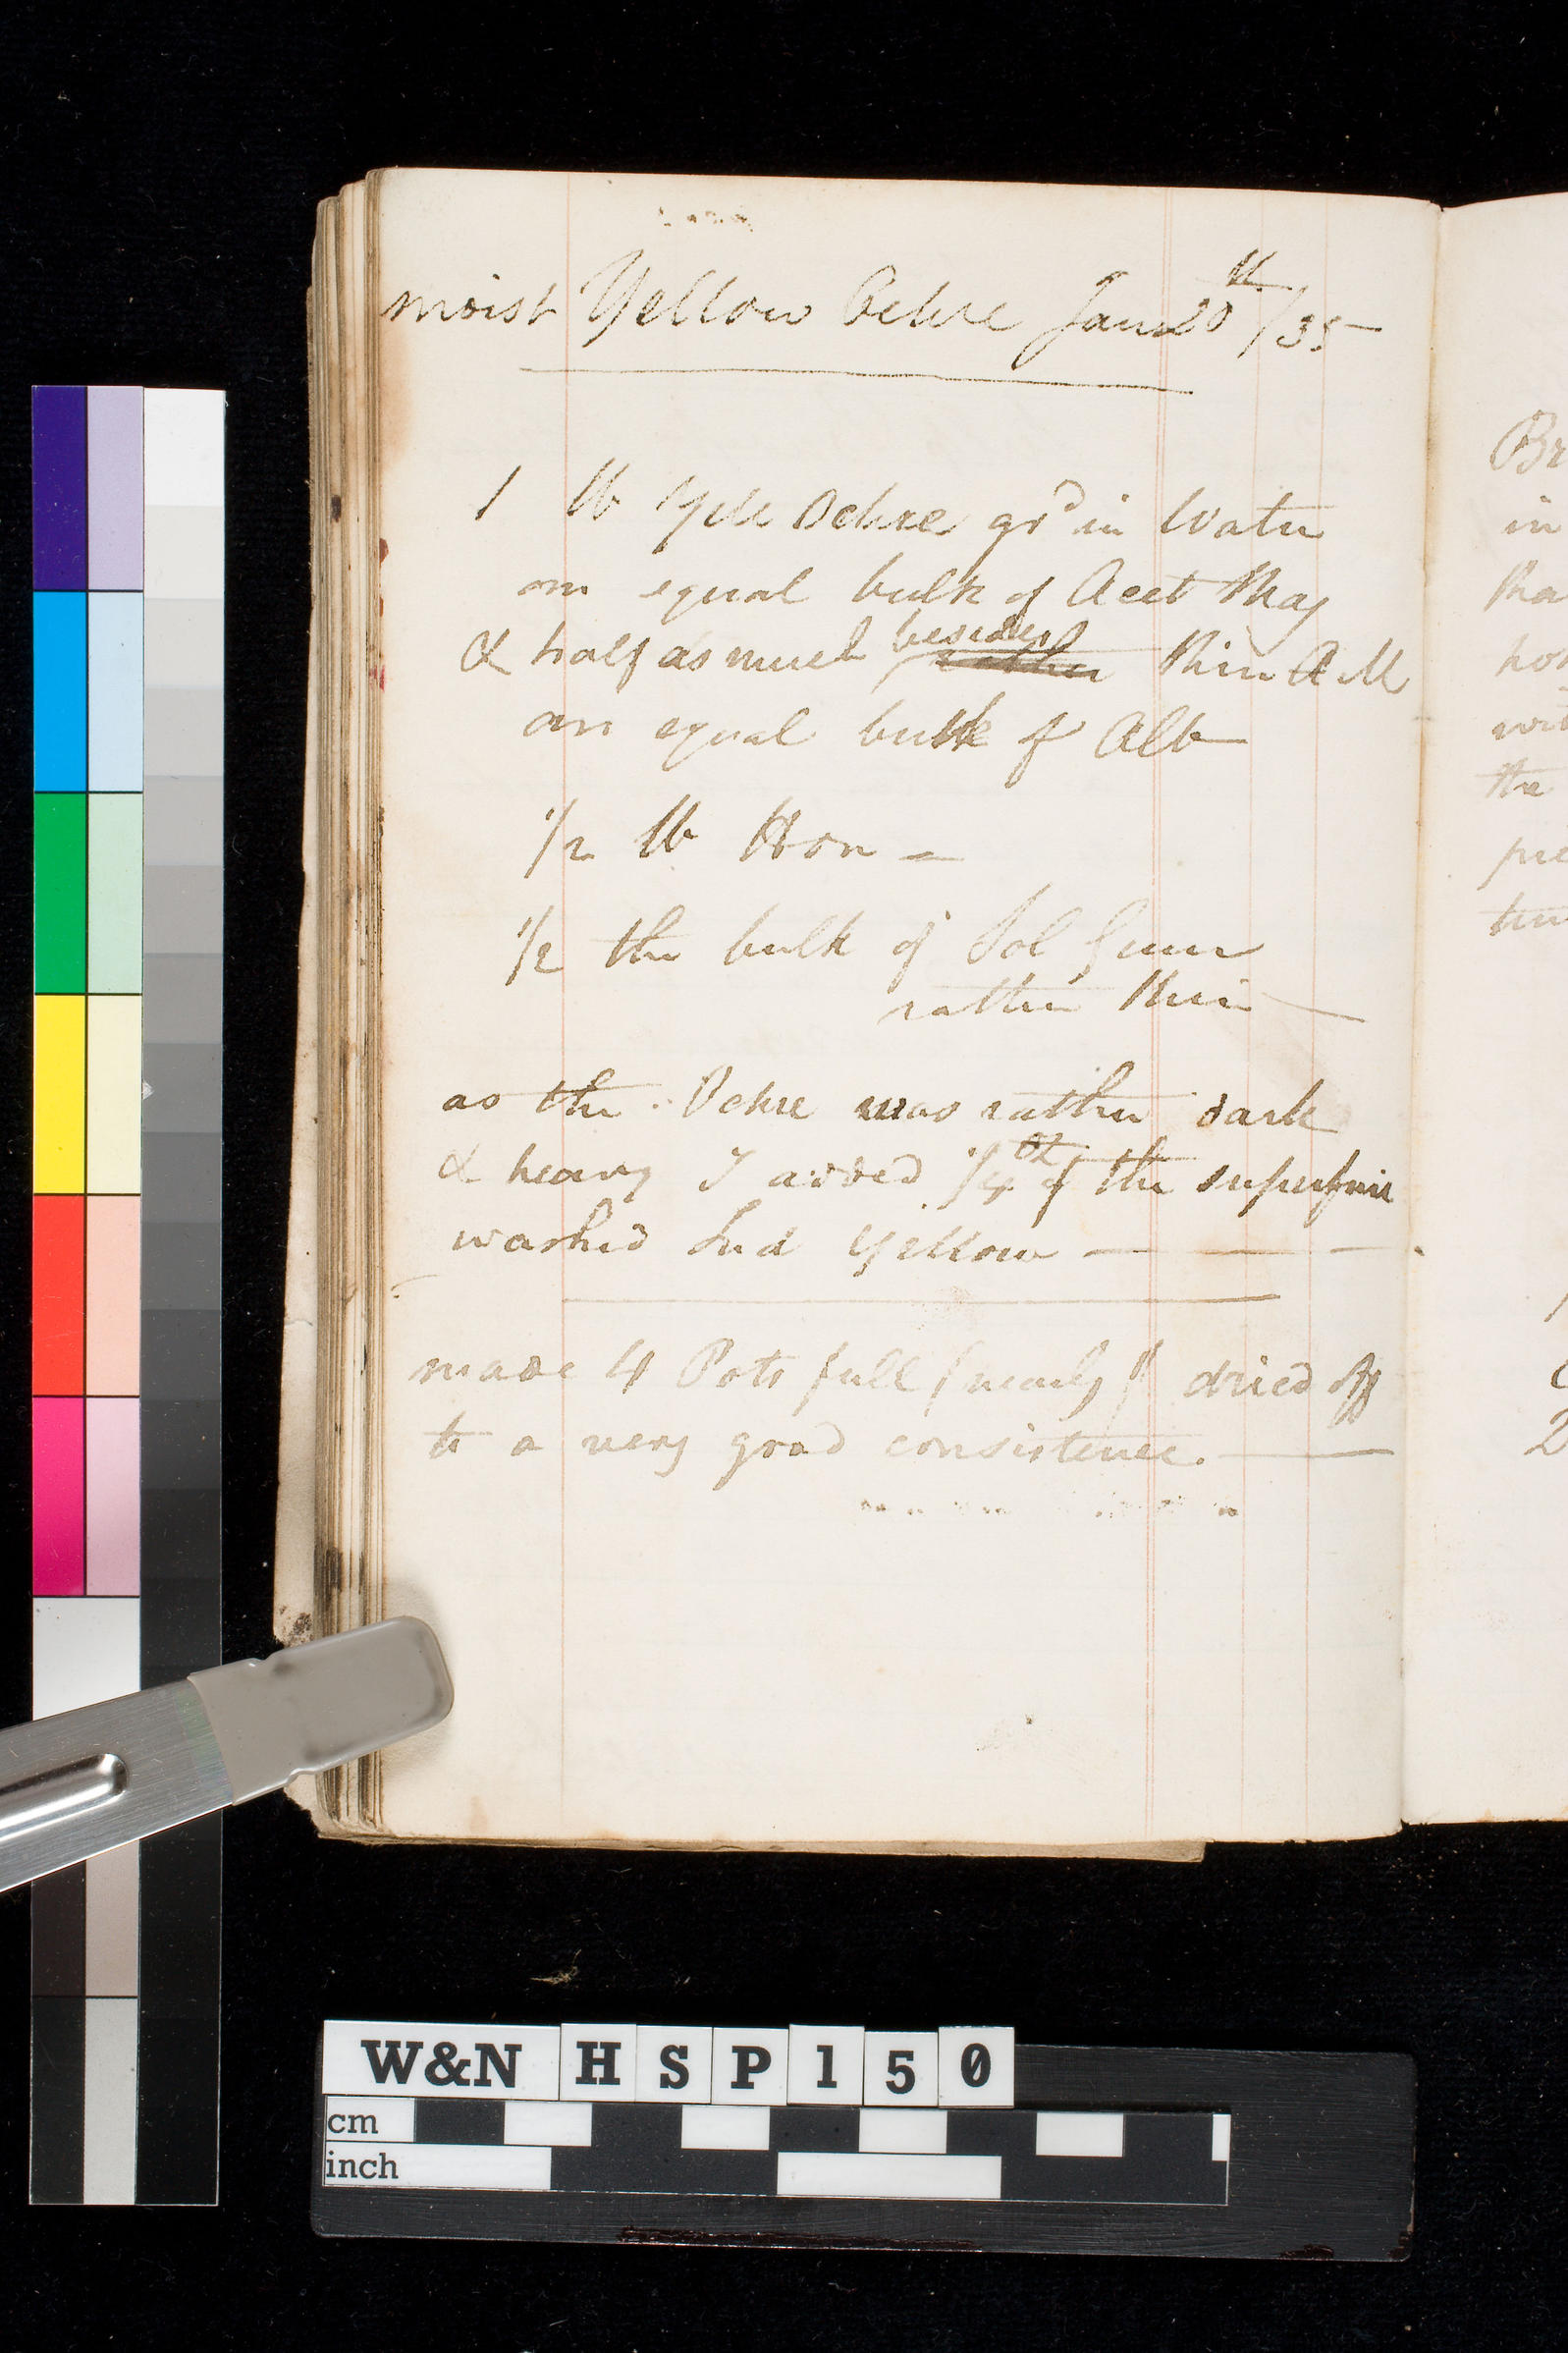 moist Yellow Ochre Jan 20th/35
1 lb Yell Ochre grd in Water
an equal bulk of Acet Mag
& half as much besides rather thin A M
an equal bulk of Alb
1/2 lb Hon
1/2 the bulk of Sol Gum
rather thin
as the Ochre was rather dark
& heavy I added 1/4th of the superfine
washed Ind Yellow
made 4 Pots full (nearly) dried off
to a very good consistence.
Br
in
pre
1
2
W&N HSP150
cm
inch